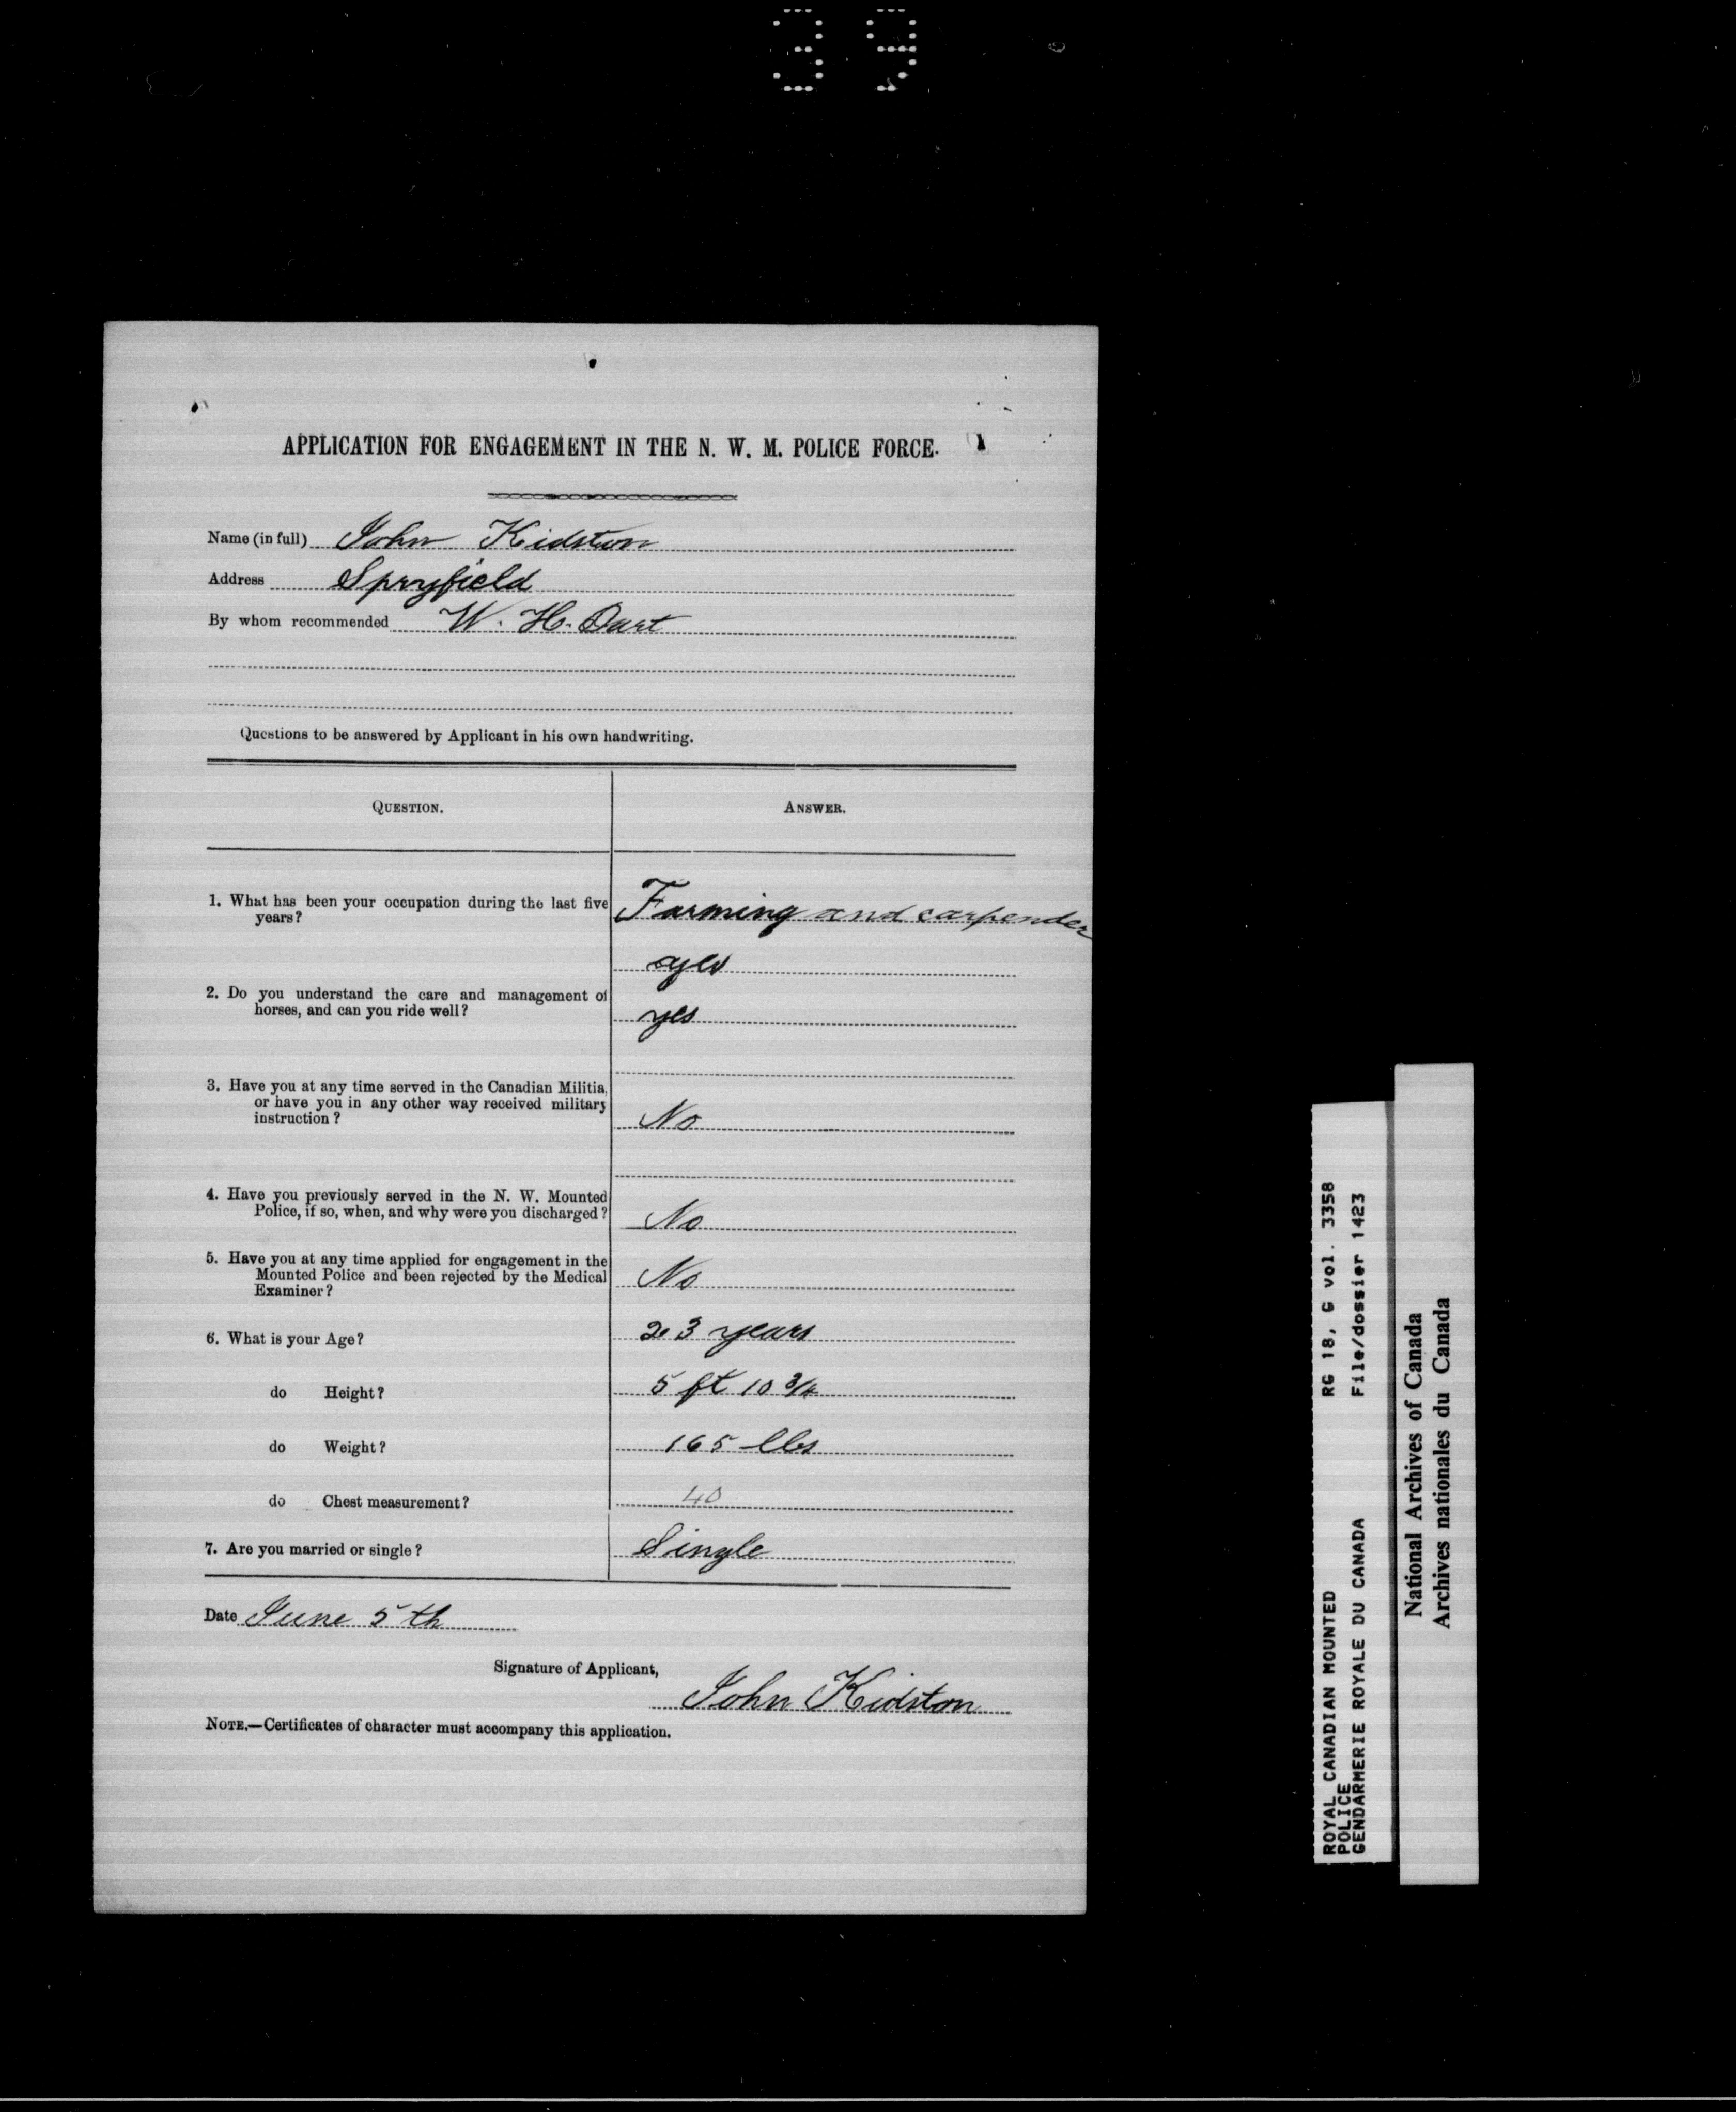 39
APPLICATION FOR ENGAGEMENT IN THE N. W. M. POLICE FORCE.
Name (in full) John Kidston
Address Spryfield
By whom recommended W. H. Dart
Questions to be answered by Applicant in his own handwriting.
QUESTION. ANSWER.
1. What has been your occupation during the last five
years?
Farming and carpender
yes
2. Do you understand the care and management of
horses, and can you ride well?
yes
3. Have you at any time served in the Canadian Militia,
or have you in any other way received military
instruction?
No
4. Have you previously served in the N. W. Mounted
Police, if so, when, and why were you discharged?
No
5. Have you at any time applied for engagement in the
Mounted Police and been rejected by the Medical
Examiner?
No
6. What is your Age? 23 years
do Height? 5 ft 10 3/4
do Weight? 165 lbs
do Chest measurement? 40
7. Are you married or single? Single
Date June 5th
Signature of Applicant,
John Kidston
NOTE.—Certificates of character must accompany this application.
ROYAL CANADIAN MOUNTED RG 18, G vol. 3358
POLICE
GENDARMERIE ROYALE DU CANADA File/dossier 1423
National Archives of Canada
Archives nationales du Canada